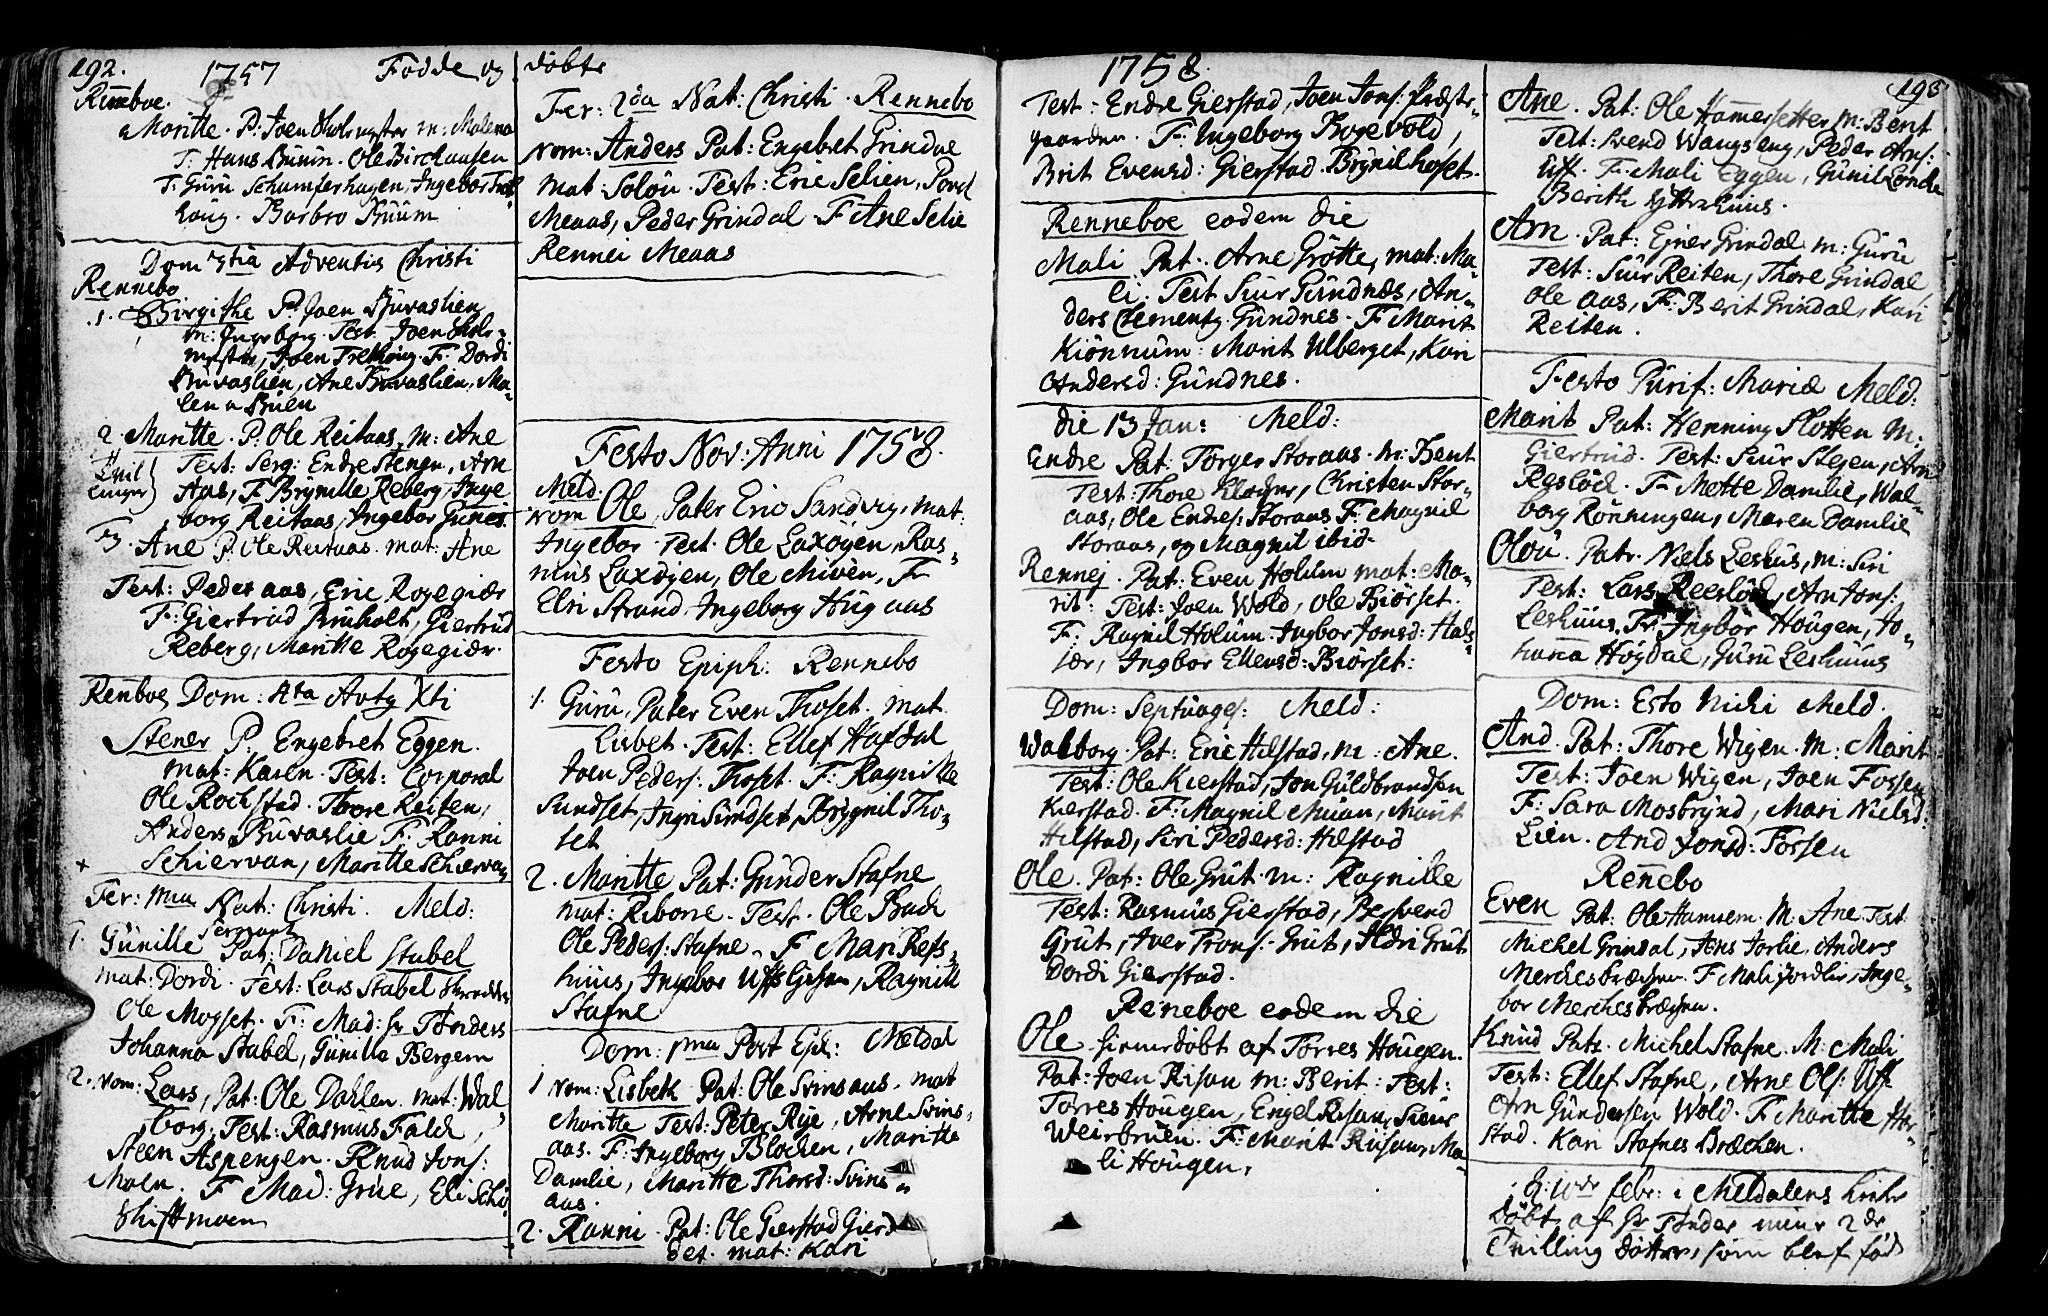 192. 1757 Fødde og døbte
Rennboe.
Maritte. P: Joen Skolemester m: Malena
T: Hans Buum. Ole Birchaasen
F: Guru Schamferhagen, Ingebor Tret
houg. Barbro Buum
Dom 3tia Adventus Christi
Rennebo
1. Birgithe P: Joen Buvaslien
m: Ingeborg. Test. Joen Skole-
mester, Joen Trethoug. F: Dordi
Buvaslien, Ane Buvaslien, Ma-
lena Buen
2. Maritte. P: Ole Reitaas, m: Ane
Test: Serg: Endre Stenen, Arn
Aas, F. Brynille Reberg, Inge
borg Reitaas, Ingebor Gunes
Tvil
linger
3. Ane P. Ole Reitaas. mat: Ane
Test: Peder aas, Eric Rogegiær
F: Giertrud Bruholt, Giertrud
Reberg, Maritte Rogegiær.
Renboe Dom: 4ta Avtg Xti
Stener P: Engebret Eggen.
mat: Karen. Test: Corporal
Ole Rochstad. Thore Reiten,
Anders Buvaslie F: Ranni
Schiervan, Maritte Schiervan
Fer: 1ma Nat: Christi. Meld:
Sergiant
1. Gunille Pat: Daniel Stabel
mat: Dordi. Test: Lars Stabel Skredder
Ole Mogset. F: Mad: hr Tønders
Johanna Stabel, Gunilla Bergem
2. Nom: Lars, Pat: Ole Dahlen. mat: Wal-
borg, Test: Rasmus Falch,
Steen Aspengen. Knud Jons:
Moen. F Mad: Grue, Eli Schi
Skiftmoen
Fer: 2da Nat: Christi. Rennebo
Nom: Anders Pat: Engebret Grindal
mat: Solou. Test: Eric Selien, Povel
Meaas, Peder Grindal F Ane Selie
Rennei Meaas
Festo Nov: Anni 1758.
Meld:
Nom Ole, Pater Eric Sandvig, mat:
Ingebor Test. Ole Laxøyen, Ras-
mus Laxøyen, Ole Miven, F
Elri Strand, Ingeborg Hugaas
Festo Epiph: Rennebo
1. Guru, Pater Even Thoset. mat
Lisbet. Test: Ellef Hafdal
Joen Peders: Thoset. F: Ragnille
Sundset, Ingri Sundset, Brygnil Tho-
set
2. Maritte Pat: Gunder Stafne
mat: Riborre. Test. Ole Bach
Ole Peders: Stafne. F Mari Refs-
huus, Ingebor Uffs, Ragnill
Stafne
Dom: 1ma Post Eph: Meldal
1 Nom: Lisbeth Pat: Ole Svinsaas. mat
Maritte Test: Peter Rye, Arne Svins-
aas. F: Ingeborg Blochen, Maritte
Damlie, Maritte Thorsd: Svins-
aas.
2. Ranni. Pat: Ole Gierstad Gierd
set. mat: Kari
1758.
Test: Endre Gierstad, Joen Jons: Præste-
gaarden. F: Ingeborg Fogevold,
Brit Evensd: Gierstad. Brynil hoset.
Renneboe eodem die
Mali Pat. Arne Grøtte, mat: Ma-
li. Test Siur Gundnes, An-
ders Clementz. Gundnes. F Marit
Kiønnum: Marit Ulberget, Kari
Andersd: Gundnes.
die 13 Jan: Meld:
Endre Pat: Torger Storaas. m: Berit
Test: Thore Klocher, Christen Stor-
aas, Ole Endres: Storaas F: Magnil
Storaas, og Magnil ibid-
Rennej. Pat: Even Holum mat: Ma-
rit: Test: Joen Wold, Ole Biørset.
F. Ragnil Holum. Ingbor Jonsd: Hals
iær, Ingbor Ellensd: Biørset:
Dom: Septuages: Meld:
Walborg. Pat: Eric Hilstad, m: Ane.
Test: Ole Kierstad, Jon Guldbrandsen
Kierstad. F: Magnil Muan, Marit
Hilstad, Siri Pedersd: Hilstad
Ole. Pat: Ole Grut. m: Ragnille
Test: Rasmus Gierstad, Bersvend
Grut, Iver Trons: Grut, Ildri Grut
Dordi Gierstad.
Reneboe eodem Die
Ole. hiemedøbt af Torres Hougen.
Pat: Joen Risan m: Berit: Test:
Torres Hougen, Engel Risan, Siur
Weirbruen. F: Marit Risan, Ma-
li Hougen.
193
Ane. Pat: Ole Hammersetter m: Berit
Test: Svend Wangseng, Peder Arns:
Uff. F: Mali Eggen, Gunil Londe
Berith Ytterhuus.
Arn. Pat: Ejner Grindal m: Guru
Test: Siur Reiten, Thore Grindal
Ole aas, F: Berit Grindal, Kari
Reiten.
Festo Purif: Mariæ Meld:
Marit Pat: Henning Slotten m:
Giertrud. Test: Siur Stegen, Arn
Reslød. F Mette Damlie, Wal-
borg Rønningen, Maren Damlie
Olou. Patr. Niels Leshus, m: Siri
Test: Lars Reesløu, Arn Jons:
Leshuus. Fr Ingbor Hougen, Jo-
hanna Høgdal, Guru Leshuus
Dom: Esto Michi Meld.
And. Pat: Thore Wigen. m: Marit
Test: Joen Wigen, Joen Fossem
F: Sara Mosbrynd, Mari Nielsd:
Lien. And Jonsd: Forsen
Renebo
Even Pat: Ole Hamrem. M: Ane. Test
Michel Grindal, Jens Jorlie, Anders
Merchesbræchen. F Mali Jordlie, Inge-
bor Merchesbræchen.
Knud Patr. Michel Stafne. M: Mali
Test: Ellef Stafne, Arne Ols: Uff
Arn Gundersen Wold. F Maritte Hor-
stad. Kari Stafnes Bræchen.
d: 10de febr: i Meldalens kirke
døbt af hr Tønder mine 2de
Tvilling døttre, som blef fød